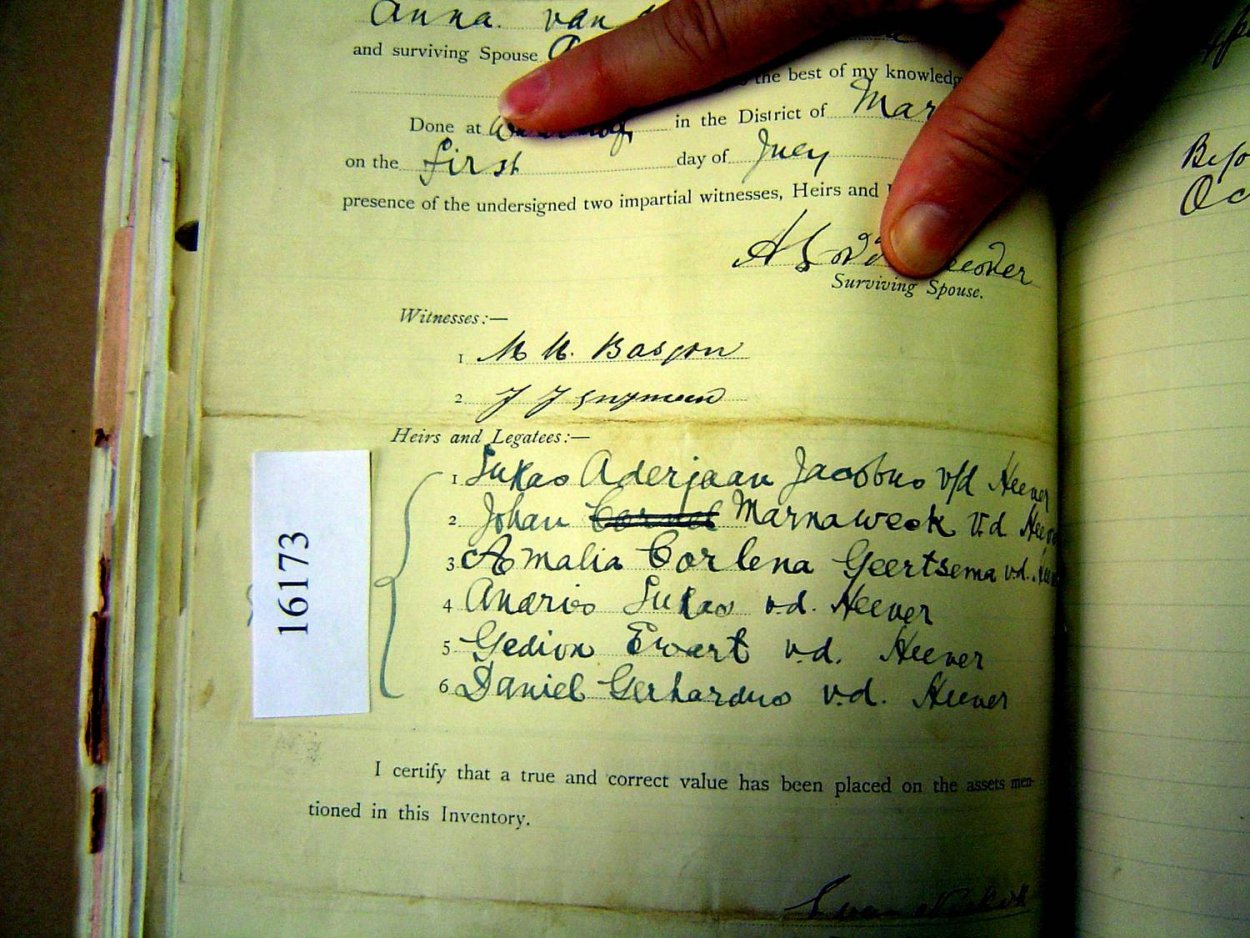 Anna van
and surviving Spouse
the best of my knowledg
Done at in the District of Mar
on the first day of July
presence of the undersigned two impartial witnesses, Heirs and
Surviving Spouse.
Witnesses:—
1 M M. Basson
2 J J Snyman
Heirs and Legatees:—
1 Lukas Aderjaan Jacobus v/d Heever
2 Johan Cornel Marnaweck v.d. Heever
3 Amalia Corlena Geertsema v.d. Heever
4 Andries Lukas v.d. Heever
5 Gedion Evart v.d. Heever
6 Daniel Gerhardus v.d. Heever
16173
I certify that a true and correct value has been placed on the assets men-
tioned in this Inventory.
Befo
Oc